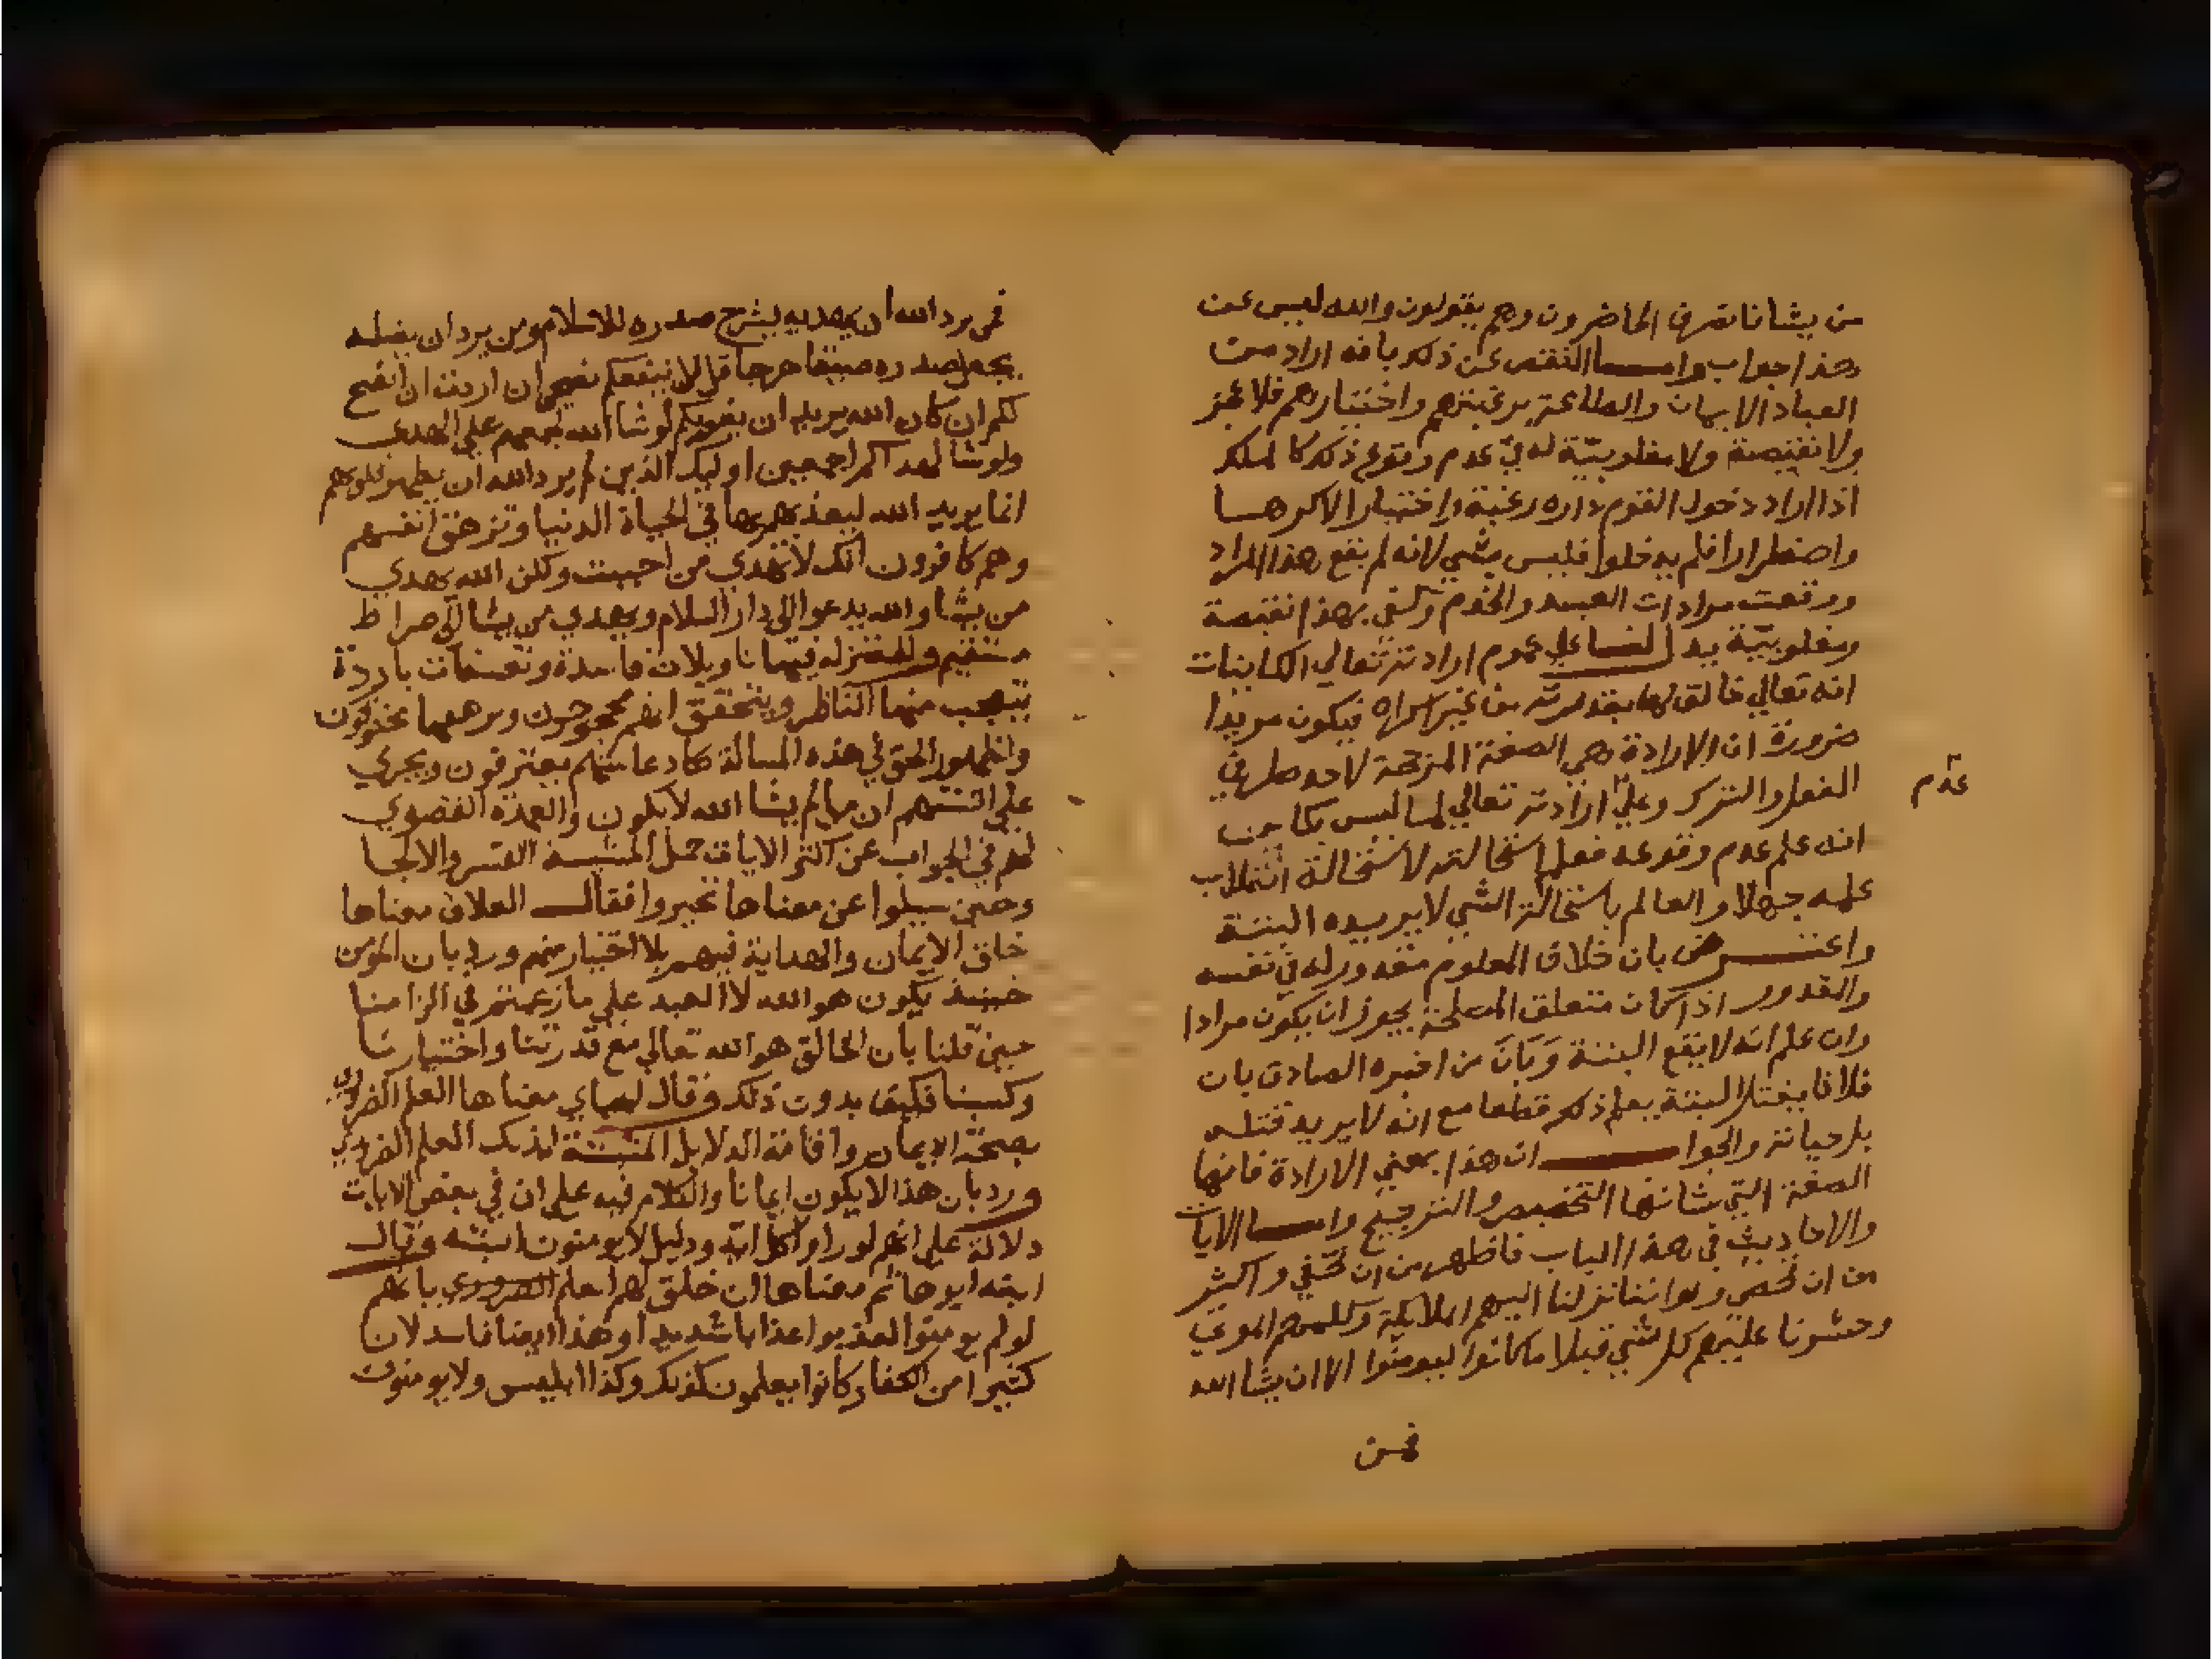 من يشا نا نصرف الحاضرون وهم يقولون والله ليس عن
هذا جواب واما التفصي عن ذلك بانه اراد من
العباد الايمان والطاعة برغبتهم واختيارهم فلا عجز
ولا نقيصة ولا مغلوبية له في عدم وقوع ذلك كالملك
اذا اراد دخول القوم داره رغبة واختيارا لا كرها
واضطرارا فلم يدخلوا فليس بشي لانه لم يقع هذا المراد
ووقعت مرادات العبيد والخدم وكفى بهذا نقيصة
ومغلوبية يد لنا على عموم ارادته تعالي الكاينات
انه تعالي خالق لها بقدرته من غير اكراه فيكون مريدا
ضرورة ان الارادة هي الصفة المرجحة لاحد طرفي
الفعل والترك وعلي ارادته تعالي لما ليس بكاين
عدم
انه علم عدم وقوعه فعلم استحالته لاستحالة انقلاب
علمه جهلا والعالم باستحالة الشي لا يريده البتة
واعترض بان خلاف المعلوم مقدور له في نفسه
والمقدور اذا كان متعلق المصلحة يجوز ان يكون مرادا
وان علم انه لا يقع البتة وبان من اخبره الصادق بان
فلانا يقتل البتة يعلم ذلك قطعا مع انه لا يريد قتله
بل حياته والجواب ان هذا يعني الارادة فانها
الصفة التي شانها التخصيص والترجيح واما الايات
والاحاديث في هذا الباب فاظهر من ان تخفي واكثر
من ان تحصي ولو اننا نزلنا اليهم الملايكة وكلمهم الموتي
وحشرنا عليهم كل شي قبلا ما كانوا ليومنوا الا ان يشا الله
فمن
فمن يرد الله ان يهديه يشرح صدره للاسلام ومن يرد ان يضله
يجعل صدره ضيقا حرجا قل لا ينفعكم نصحي ان اردت ان انصح
لكم ان كان الله يريد ان يغويكم لو شا الله لجمعهم علي الهدي
ولو شا لهداكم اجمعين اوليك الذين لم يرد الله ان يطهر قلوبهم
انما يريد الله ليعذبهم بها في الحياة الدنيا وتزهق انفسهم
وهم كافرون انك لا تهدي من احببت ولكن الله يهدي
من يشا والله يدعوا الي دار السلام ويهدي من يشا الي صراط
مستقيم وللمعتزله فيها تاويلات فاسدة وتعسفات باردة
يتعجب منها الناظر ويتحقق انهم محجوجون
ولظهور الحق في هذه المسالة كاد عامتهم يعترفون ويجري
علي السنتهم ان ما لم يشا الله لا يكون والعمدة القصوي
لهم في الجواب عن اكثر الايات حمل المشيية القسر والالجا
وحين سيلوا عن معناها تحيروا فقال العلاف معناها
خلق الايمان والهداية فيهم بلا اختيار منهم ورد بان المومن
حينيذ يكون هو الله لا العبد علي ما زعمتم في الزامنا
حين قلنا بان الخالق هو الله تعالي مع قدرتنا واختيارنا
وكسبنا فكيف بدون ذلك وقال الجباي معناها العلم الضروري
بصحة الايمان واقامة الدلايل المثبتة لذلك العلم الضروري
ورد بان هذا لا يكون ايمانا والكلام فيه علي ان في بعض الايات
دلالة علي انهم لو راوا كل اية ودليل لا يومنون البتة وقال
ابنه ابو هاشم معناها ان خلق لهم العلم الضروري بانهم
لو لم يومنوا لعذبوا عذابا شديدا وهذا ايضا فاسد لان
كثيرا من الكفار كانوا يعلمون ذلك وكذا ابليس ولا يومنون